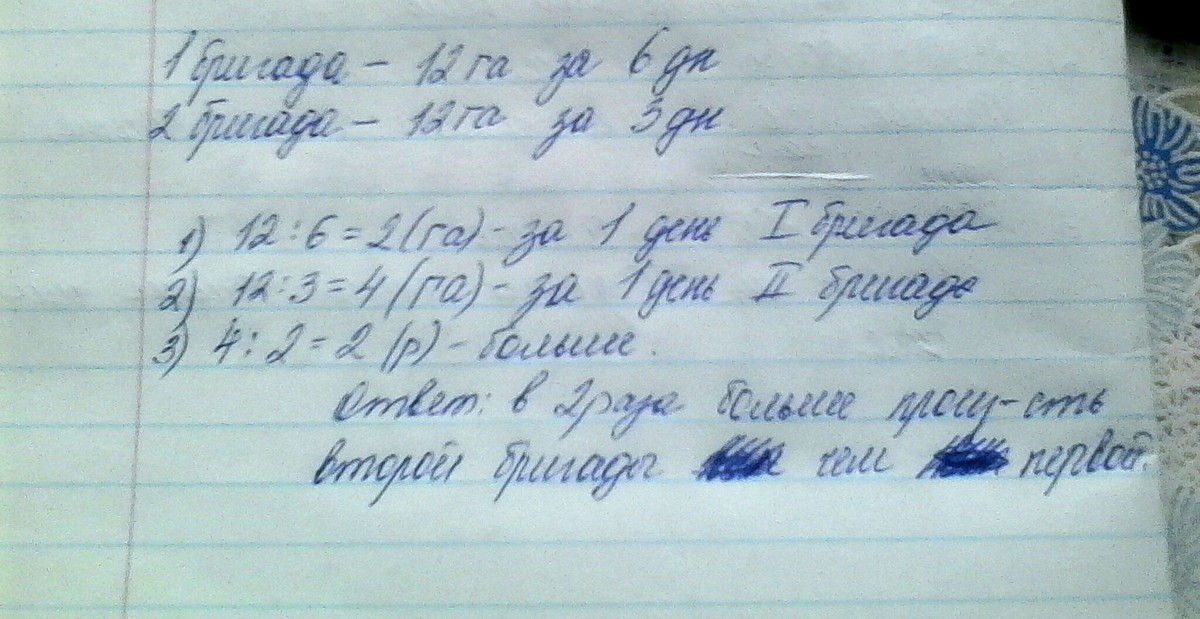 1 бригада – 12 га за 6 дн
2 бригада – 12 га за 3 дн
1) 12 : 6 = 2 (га) - за 1 день I бригада
2) 12 : 3 = 4 (га) - за 1 день II бригада
3) 4 : 2 = 2 (р) - больше.
Ответ: в 2 раза больше произ-сть
второй бригады чем первой.